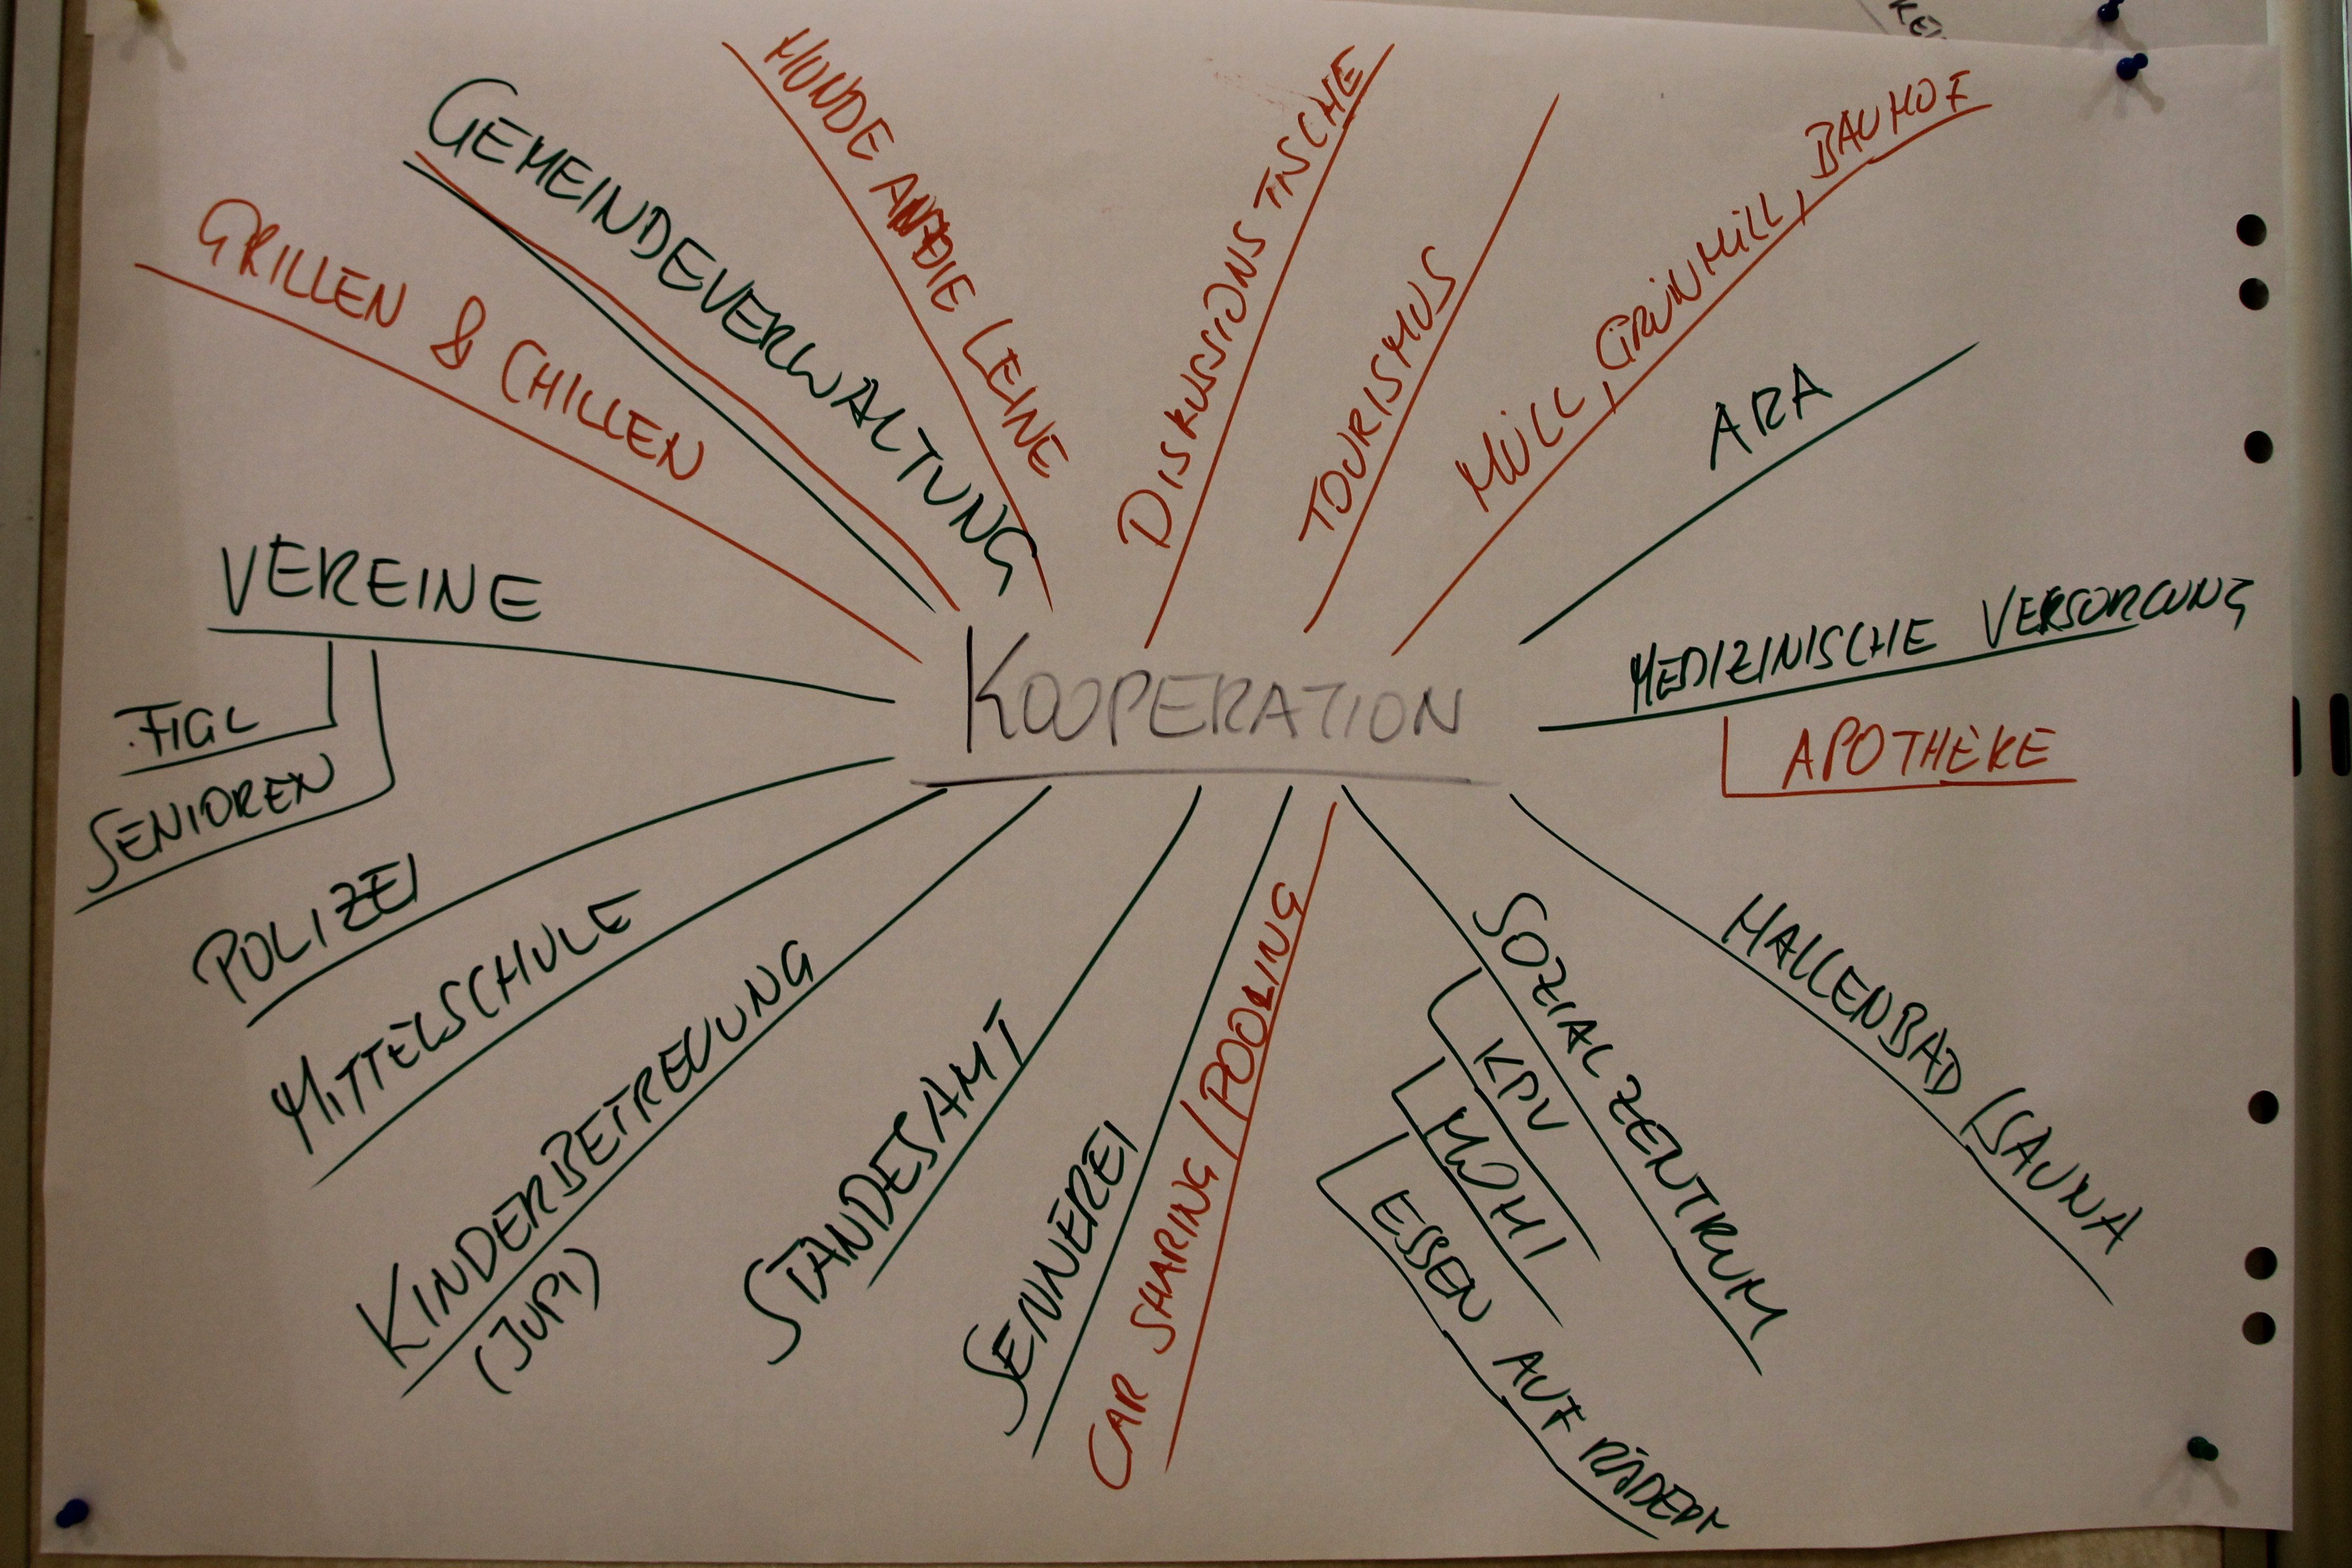 KOOPERATION
GRILLEN & CHILLEN
GEMEINDEVERWALTUNG
HUNDE AN DIE LEINE
DISKUSSIONSTISCHE
TOURISMUS
MÜLL, GRÜNMÜLL, BAUHOF
ARA
MEDIZINISCHE VERSORGUNG
APOTHEKE
HALLENBAD/SAUNA
SOZIALZENTRUM
KPV
MOHI
ESSEN AUF RÄDERN
CAR SHARING/POOLING
SENNEREI
STANDESAMT
KINDERBETREUUNG
(JUPI)
MITTELSCHULE
POLIZEI
VEREINE
FIGL
SENIOREN